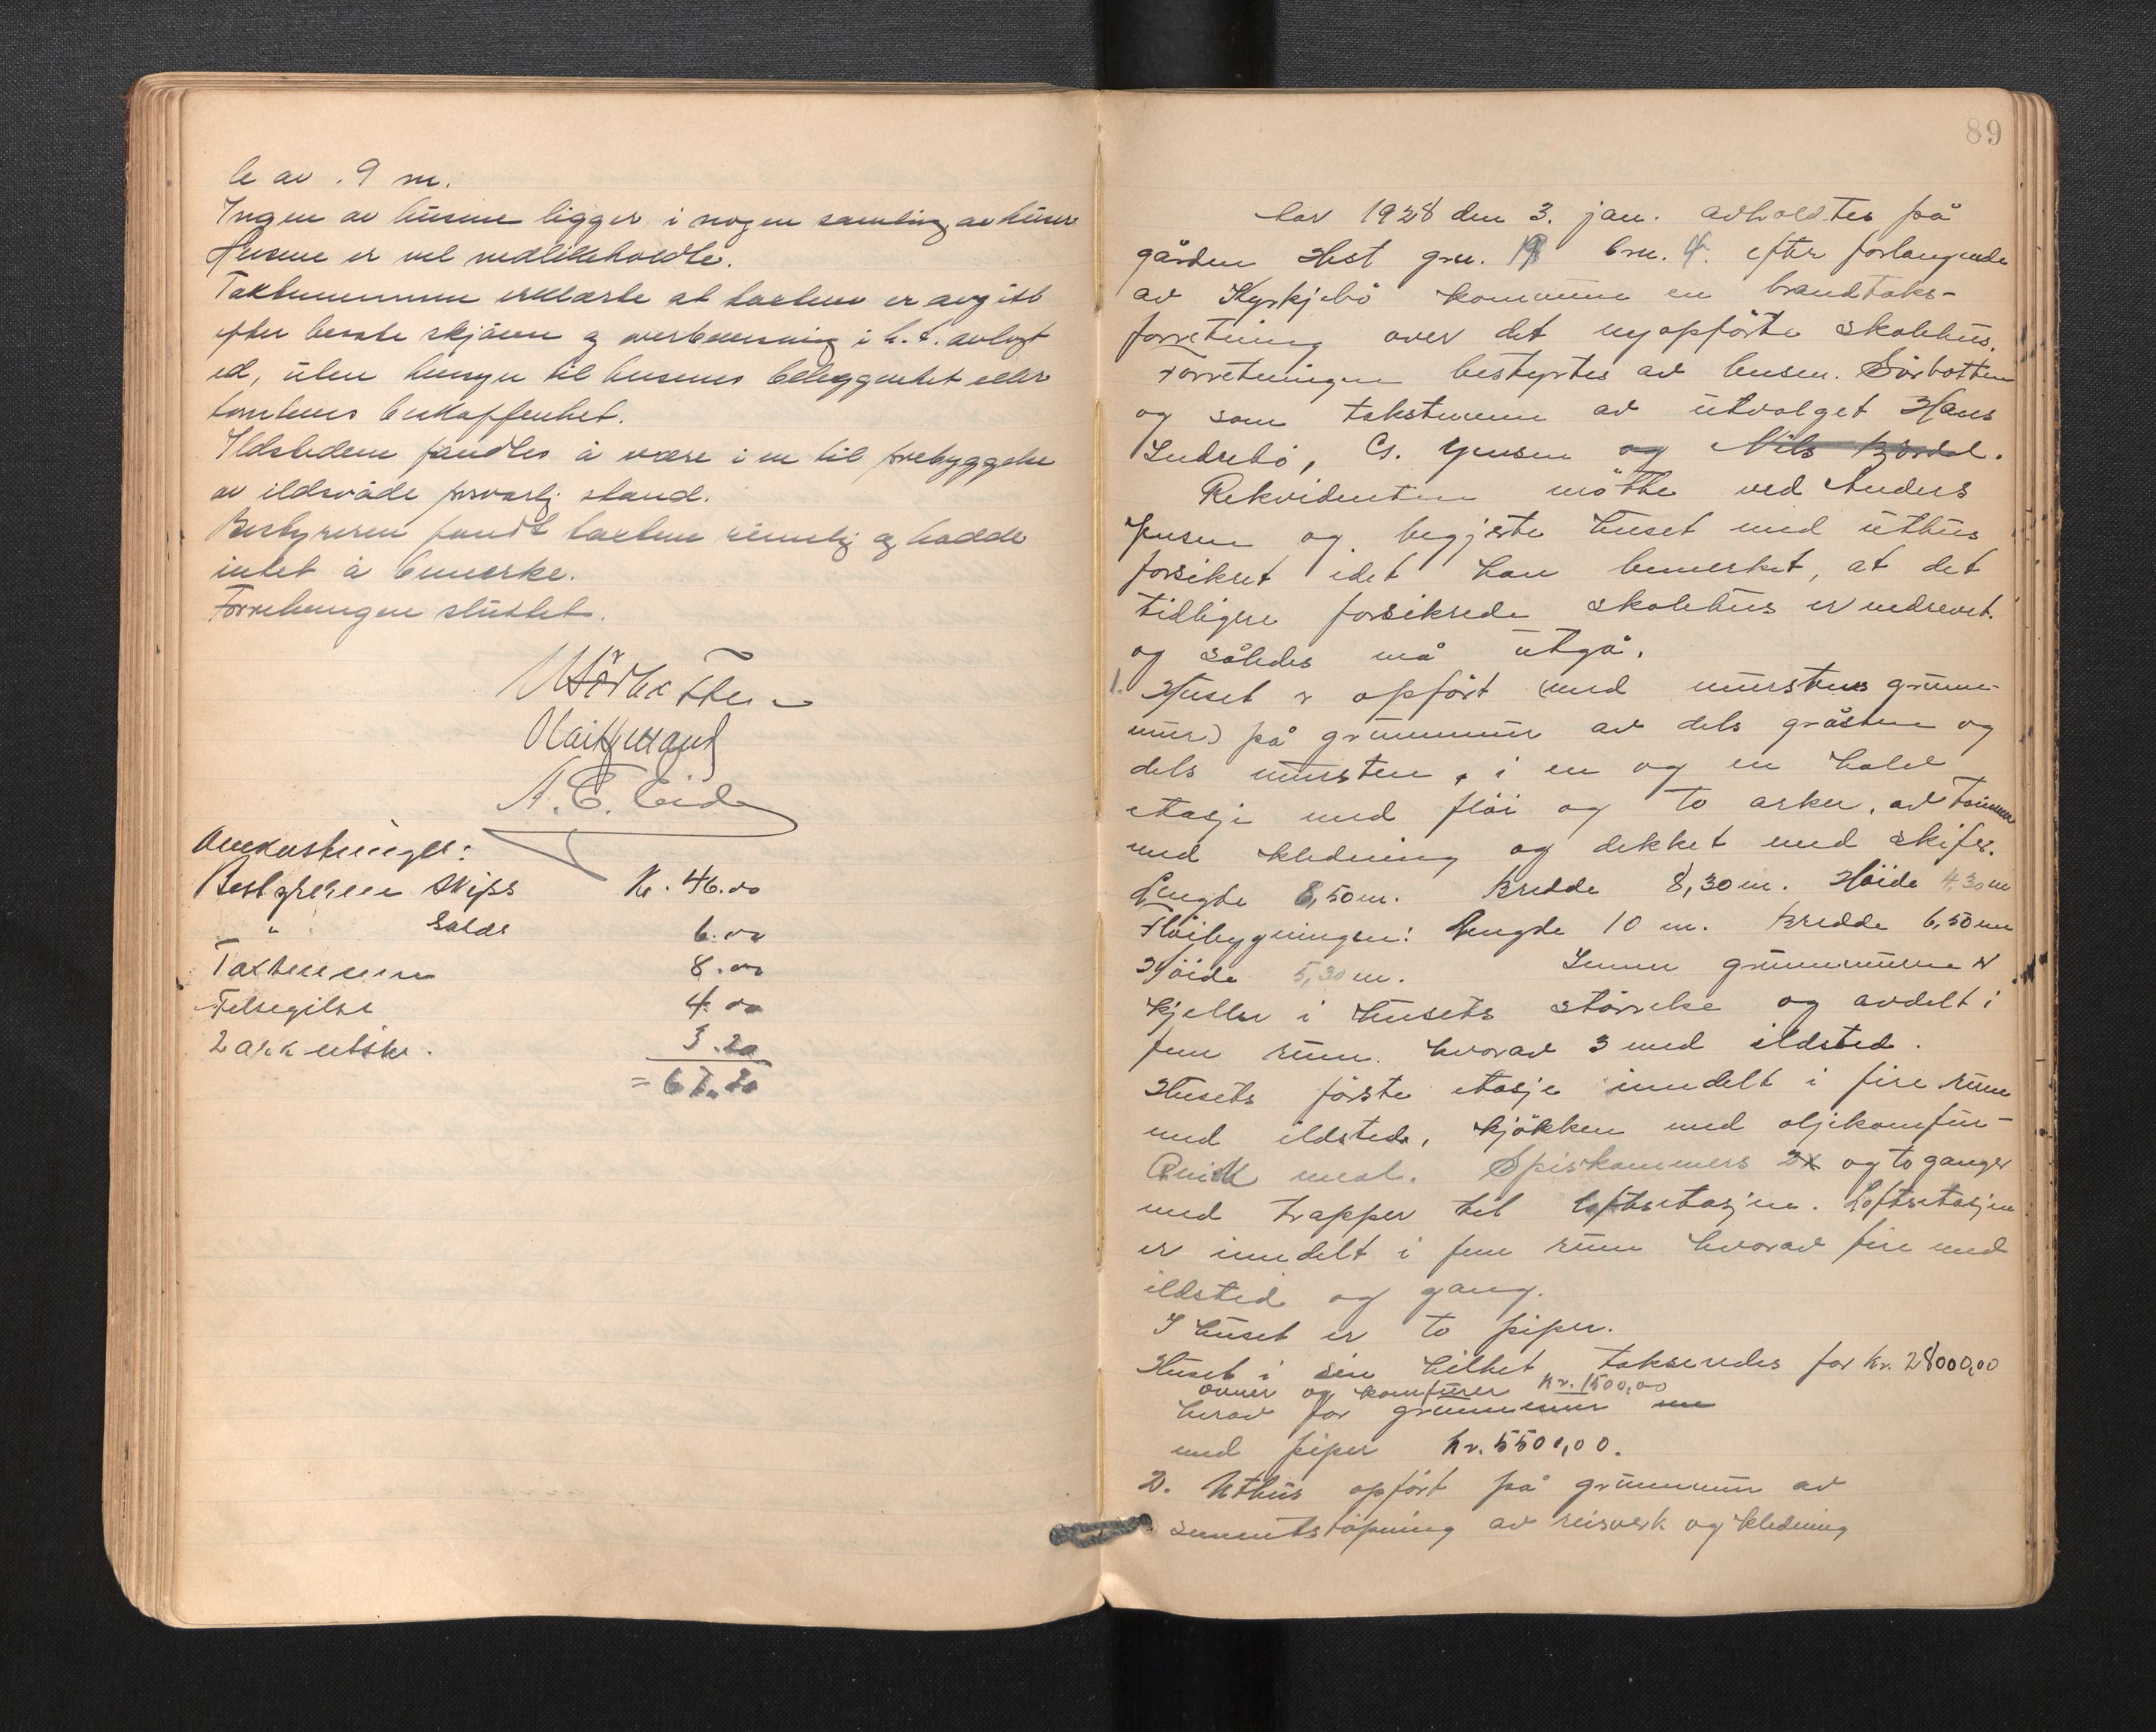 le av . 9 m.
Ingen av husene ligger i nogen samling av huser
Husene er vel vedlikeholdte.
Taxtmennene erklærte at taxten er avgitt
efter beste skjønn og overbevisning i h. t. avlagt
ed, uten hensyn til husenes beleggenhet eller
tomtens beskaffenhet.
Ildstedene fandtes å være i en til forebyggelse
av ildsvåde forsvarlig stand.
Bestyreren fandt taxten rimelig og hadde
intet å bemerke.
Forretningen sluttet.
A. E. Eide
Omkostninger:
Bestyreren Skyss Kr. 46.00
" Salär 6.00
Taxtmennene 8.00
Følsegilst 4.00
2 ark utskr. 3.20
= 67.20
89
Aar 1928 den 3. jan. avholdtes på
gården Hest grn. 19 brn. 4. efter forlangende
av Kyrkjebö kommune en brandtaks-
forretning over det nyopförte skolehus.
Forretningen bestyrtes av lensm. Sörbotten
og som takstmenn av utvalget Hans
Ludebö, Cs. Jensen og Nils Bjordal.
Rekvidenten mötte ved Anders
Jensen og begjærte huset med uthus
forsikret idet han bemerket, at det
tidligere forsikrede skolehus er nedrevet.
og således må utgå.
1. Huset er opfört (med murstens grunn-
mur) på grunnmur av dels gråsten og
dels mursten, i en og en halv
etasje med flöi og to arker, av tömmer
med kledning og dekket med skifer.
Lengde 8,50 m. Bredde 8,30 m. Höide 4,30 m
Flöibygningen: Lengde 10 m. Bredde 6,50 m
Höide 5,30 m. Innen grunnmurene er
kjeller i husets störrelse og avdelt i
fem rum. hvorav 3 med ildsted.
Husets förste etasje inndelt i fire rum
med ildsted, kjökken med oljekomfur-
Quick meal. Spiskammers 2x og to ganger
med trapper til loftsetasjen. Loftsetasjen
er inndelt i fem rum hvorav fire med
ildsted og gang.
I huset er to piper.
Huset i sin helhet takseredes for kr. 28000,00
ovner og komfurer Kr. 1500,00
herav for grunnmur
med piper kr. 5500,00.
2. Uthus opfört på grunnmur av
sementstöpning av reisverk og kledning